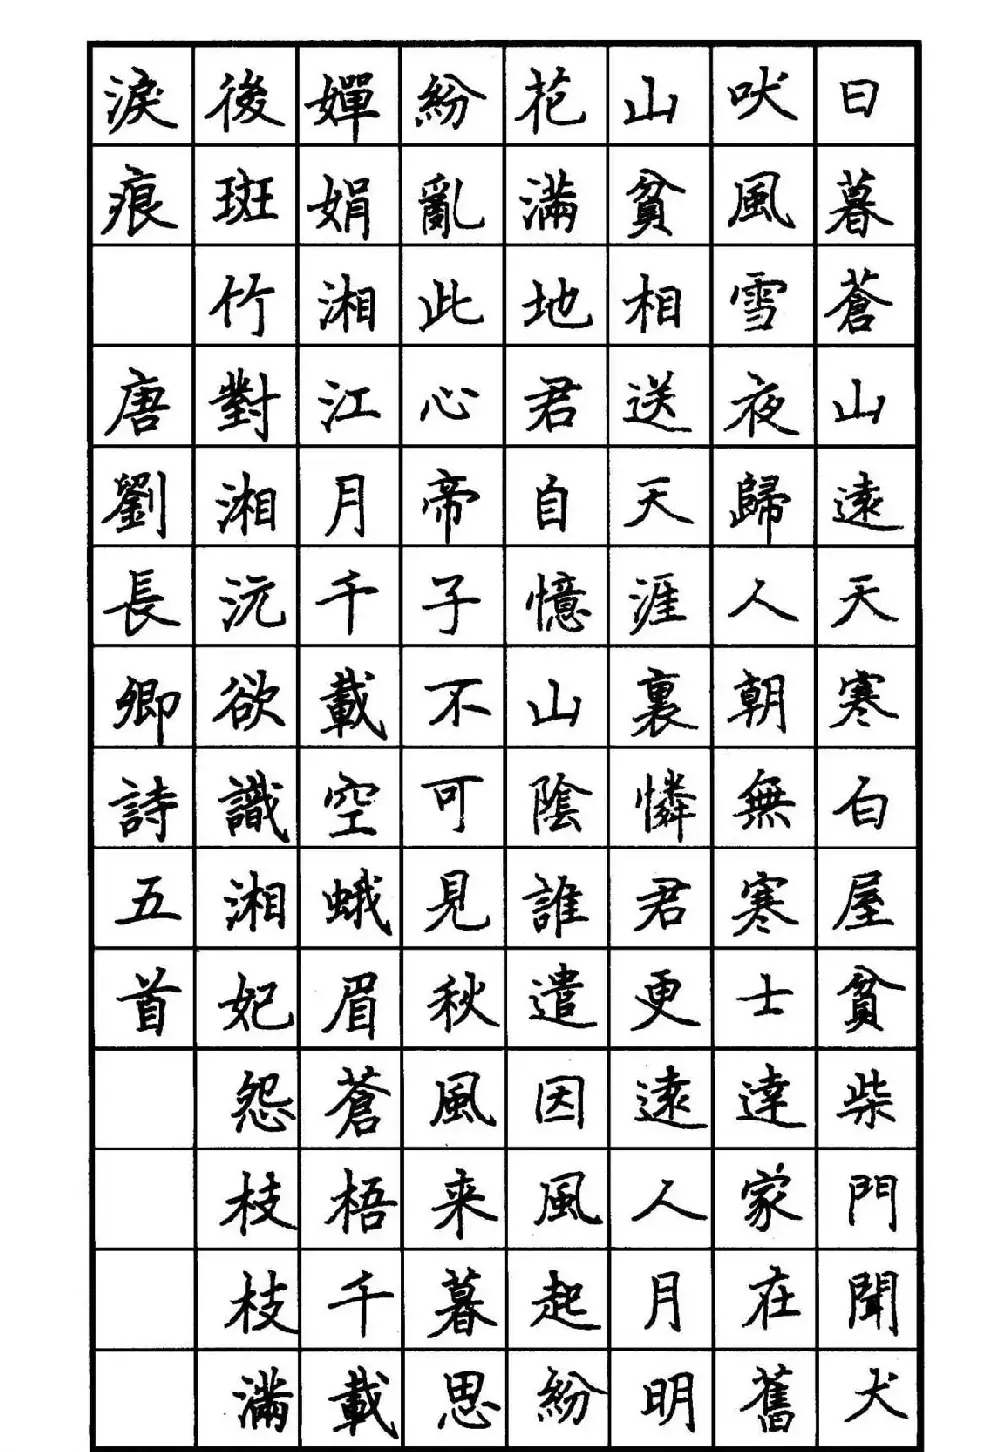 日暮蒼山遠天寒白屋貧柴門聞犬
吠風雪夜歸人朝無寒士達家在舊
山貧相送天涯裏憐君更遠人月明
花滿地君自憶山陰誰遣因風起紛
紛亂此心帝子不可見秋風来暮思
嬋娟湘江月千載空蛾眉蒼梧千載
後斑竹對湘沅欲識湘妃怨枝枝滿
淚痕 唐劉長卿詩五首